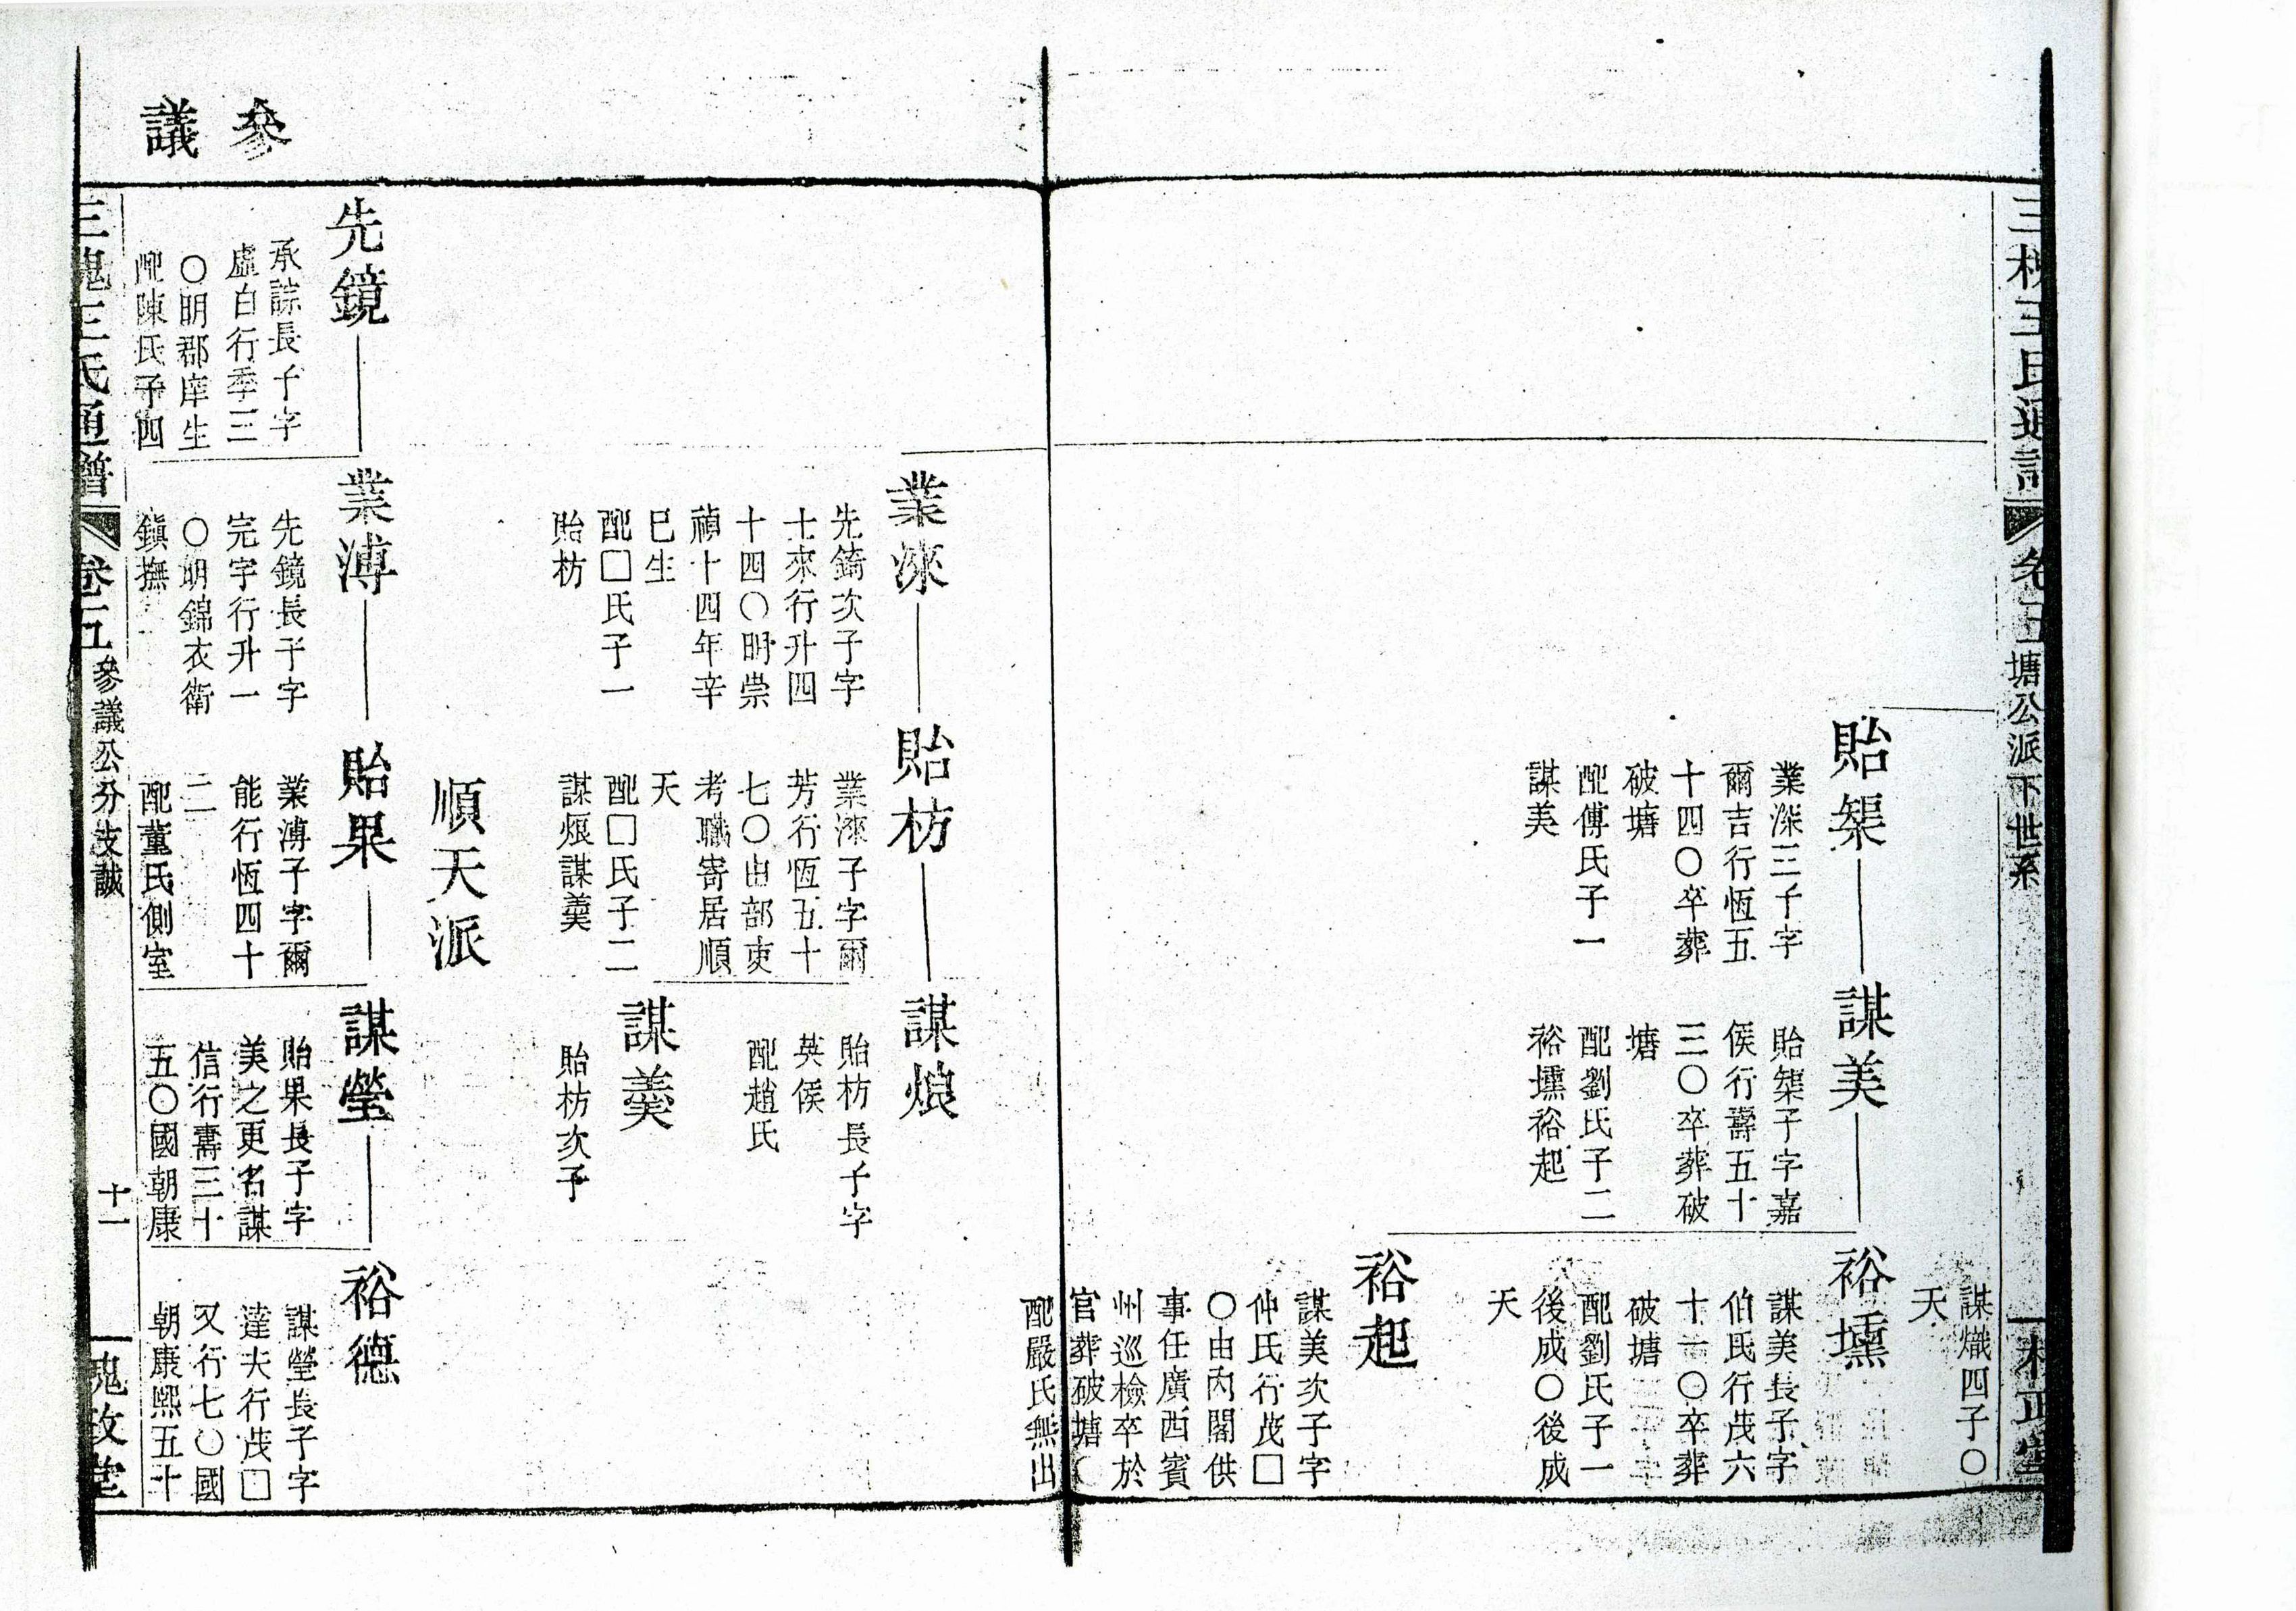 三槐王氏通譜
卷五
塘公派下世系
三槐堂
謀熾四子〇
夭
貽榘
業深三子字
爾吉行恆五
十四〇卒葬
破塘
配傅氏子一
謀美
謀美
貽榘子字嘉
侯行壽五十
三〇卒葬破
塘
配劉氏子二
裕壎裕起
裕壎
謀美長子字
伯氏行茂六
十一〇卒葬
破塘
配劉氏子一
後成〇後成
夭
裕起
謀美次子字
仲氏行茂□
〇由內閣供
事任廣西賓
州巡檢卒於
官葬破塘
配嚴氏無出
業淶
先錡次子字
士來行升四
十四〇明崇
禎十四年辛
巳生
配□氏子一
貽枋
貽枋
業淶子字爾
芳行恆五十
七〇由部吏
考職寄居順
天
配□氏子二
謀烺謀羹
謀烺
貽枋長子字
英侯
配趙氏
謀羹
貽枋次子
順天派
參議
先鏡
承誴長子字
虛白行季三
〇明郡庠生
配陳氏子四
業溥
先鏡長子字
完宇行升一
〇明錦衣衛
鎮撫
貽果
業溥子字爾
能行恆四十
二
配董氏側室
謀瑩
貽果長子字
美之更名謀
信行壽三十
五〇國朝康
裕德
謀瑩長子字
達夫行茂□
又行七〇國
朝康熙五十
三槐王氏通譜
卷五
參議公分支誠
十一
槐政堂